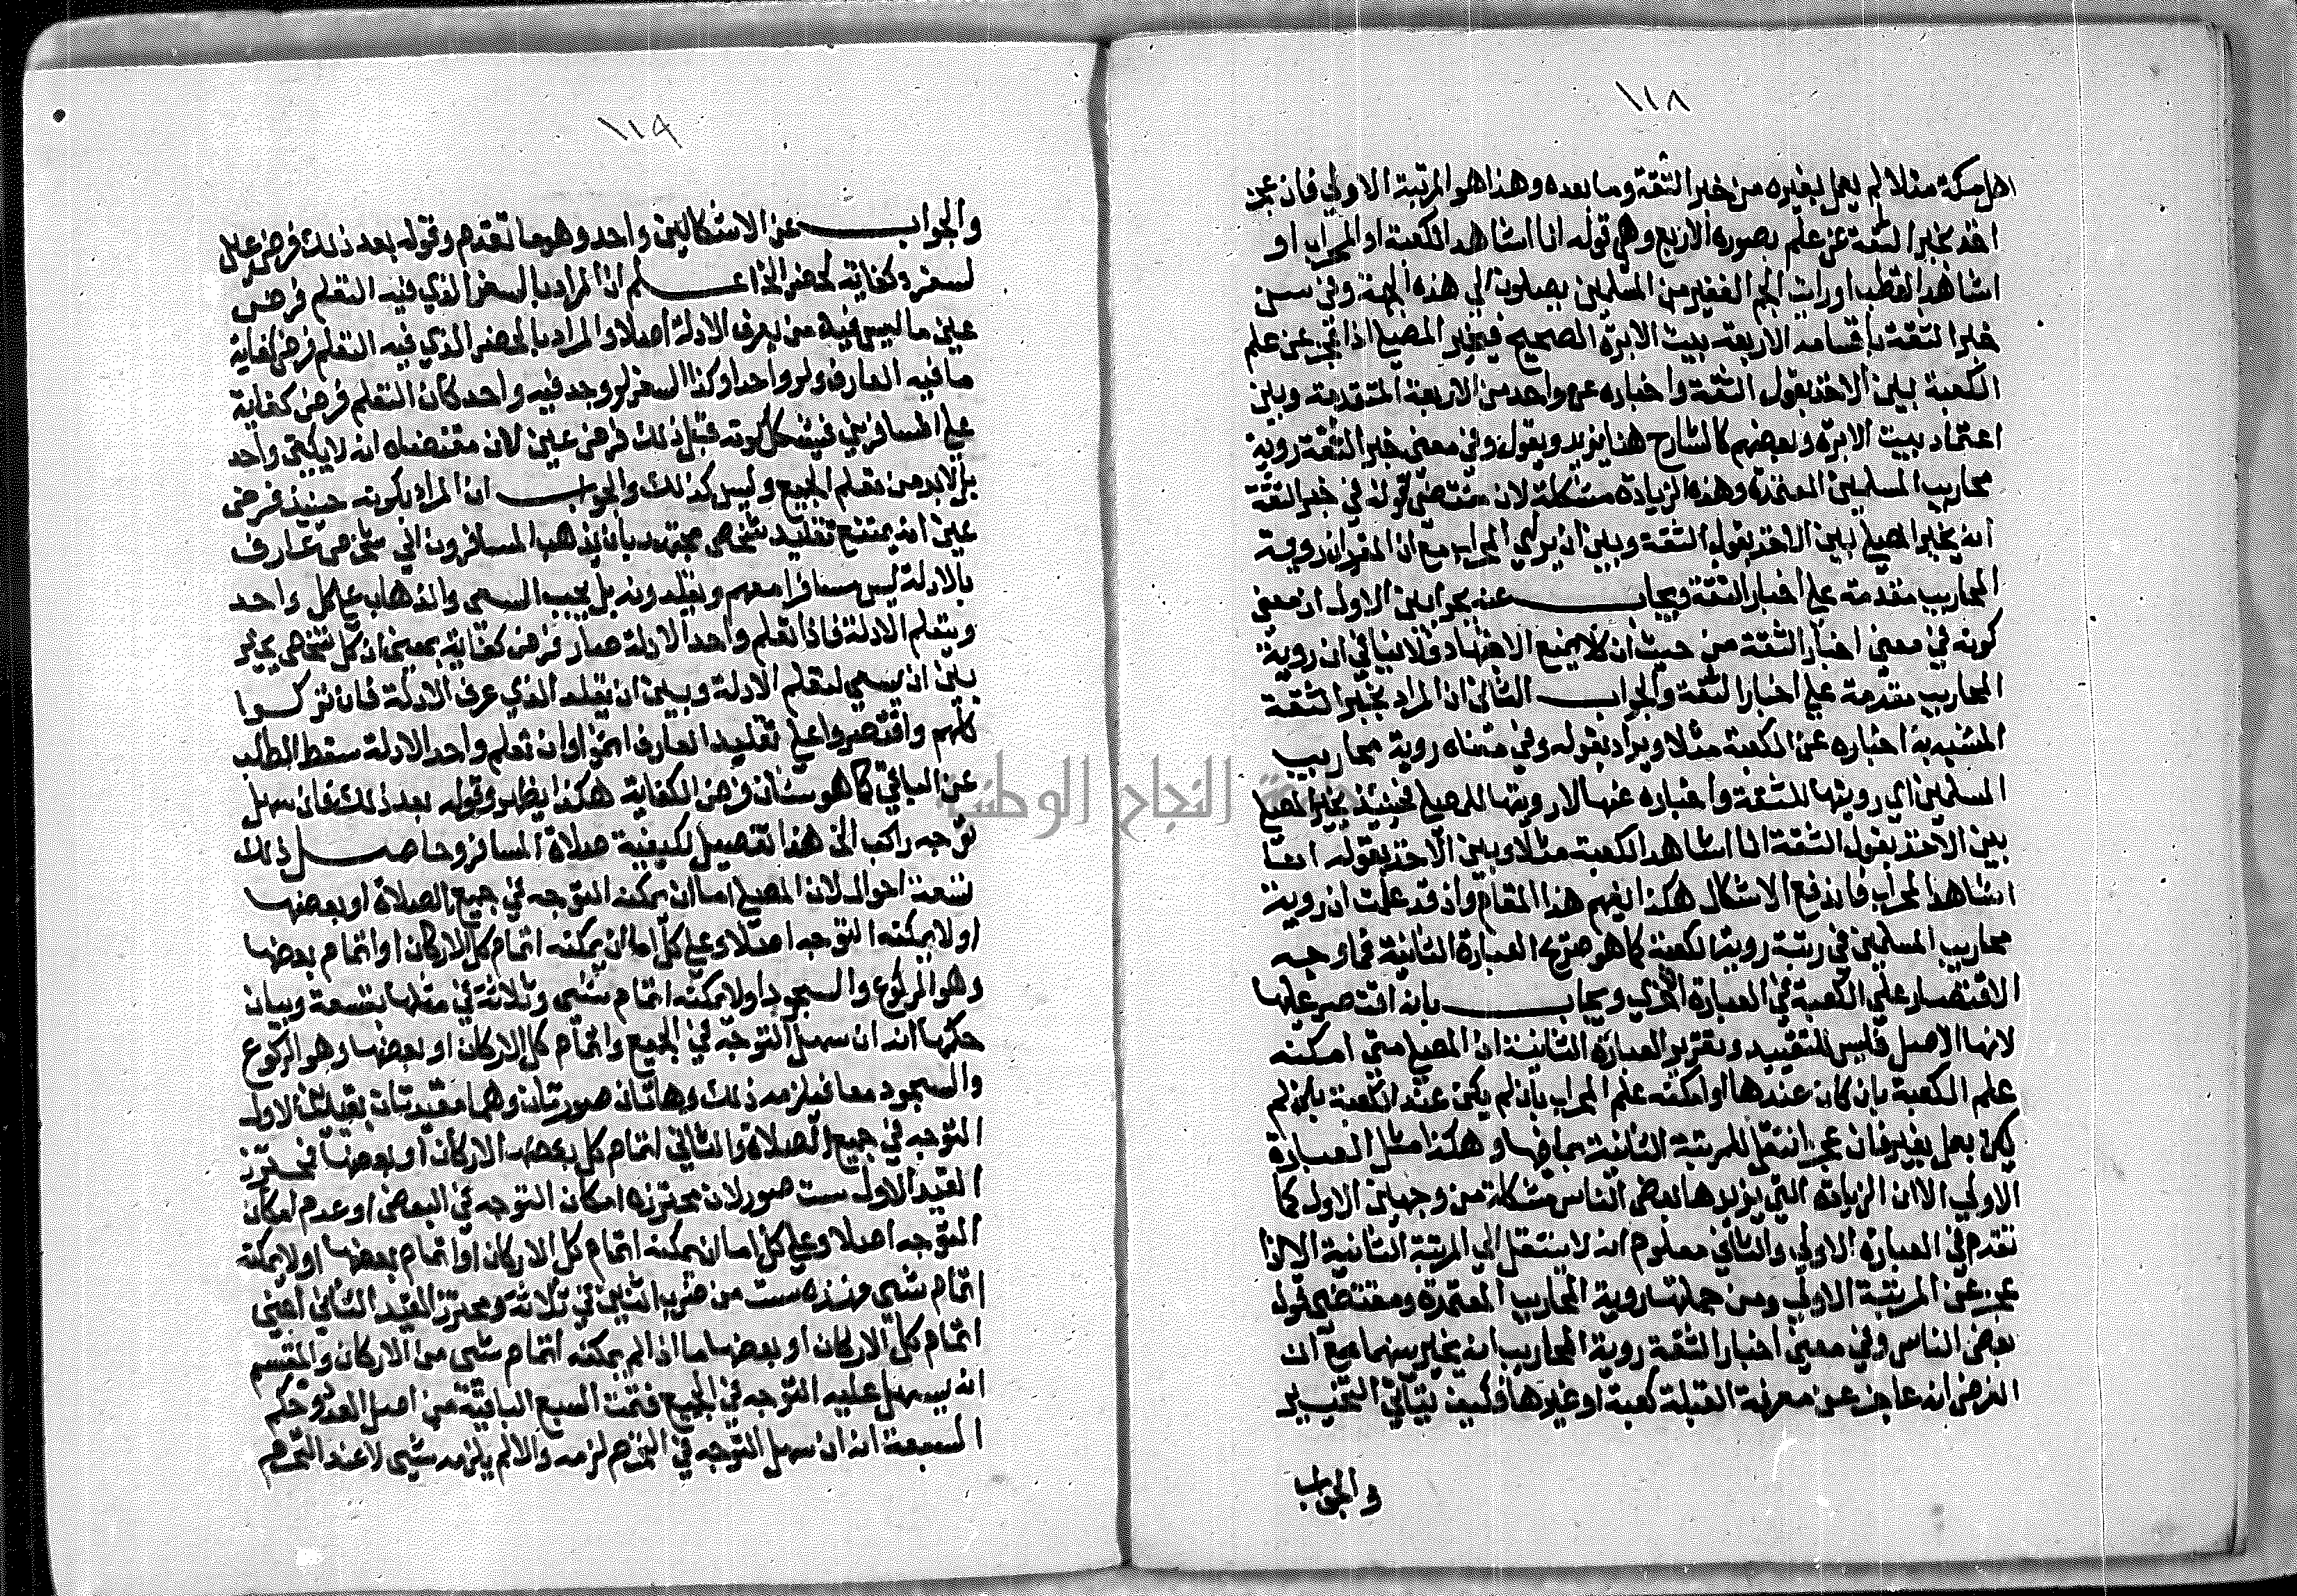 ١١٨
اهل مكة مثلا لم يعمل بغيره من خبر الثقة وما بعده وهذا هو المرتبة الاولي فان عجز
اخذ بخبر الثقة عن علم بصوره الاربع وهي قوله انا اشاهد الكعبة او المحراب او
اشاهد القطب او رايت الجم الغفير من المسلمين يصلون الي هذه الجهة وفي
خبر الثقة باقسامه الاربعة بيت الابرة الصحيح فيخير المصلي اذا عجز عن علم
الكعبة بين الاخذ بقول الثقة واخباره عن واحد من الاربعة المتقدمة وبين
اعتماد بيت الابرة وبعضهم كالشارح هنا يزيد ويقول وفي معني خبر الثقة روية
محاريب المسلمين المعتمدة وهذه الزيادة مشكلة لان مقتضي قوله في خبر الثقة
انه يخير المصلي بين الاخذ بقول الثقة وبين ان يري المحراب مع ان المقرر ان روية
المحاريب مقدمة علي اخبار الثقة ويجاب عنه بجوابين الاول ان معني
كونه في معني اخبار الثقة من حيث ان كلا يمنع الاجتهاد ولا ينافي ان روية
المحاريب مقدمة علي اخبار الثقة والجواب الثاني ان المراد بخبر الثقة
المشبه به اخباره عن الكعبة مثلا ويراد بقوله وفي معناه روية محاريب
المسلمين اي رويتها للثقة واخباره عنها لا رويتها للمصلي فحينئذ يخير المصلي
بين الاخذ بقول الثقة انا اشاهد الكعبة مثلا وبين الاخذ بقوله انا
اشاهد المحراب فاندفع الاشكال هكذا يفهم هذا المقام واذ قد علمت ان روية
محاريب المسلمين في رتبة روية الكعبة كما هو صريح العبارة الثانية فما وجه
الاقتصار علي الكعبة في العبارة الاخري ويجاب بانه اقتصر عليها
لانها الاصل فليس للتقييد وتقرير العبارة الثانية ان المصلي متي امكنه
علم الكعبة بان كان عندها او امكنه علم المحراب بان لم يكن عند الكعبة
يعمل بغيره فان عجز انتقل للمرتبة الثانية بما فيها وهكذا مثل العبارة
الاولي الا ان الزيادة التي يزيدها بعض الناس مشكلة من وجهين الاول كما
تقدم في العبارة الاولي والثاني معلوم انه لا ينتقل الي المرتبة الثانية الا اذا
عجز عن المرتبة الاولي ومن جملتها روية المحاريب المعتمدة ومقتضي قول
بعض الناس وفي معني اخبار الثقة روية المحاريب انه يخير بينهما مع ان
الفرض انه عاجز عن معرفة القبلة كعبة او غيرها فكيف يتاتي التخيير
والجواب
١١٩
والجواب عن الاشكالين واحد وهو ما تقدم وقوله بعد ذلك فرض عين
لسفر وكفاية لحضر الخ اعلم ان المراد بالسفر الذي فيه التعلم فرض
عين ما ليس فيه من يعرف الادلة اصلا والمراد بالحضر الذي فيه التعلم فرض كفاية
ما فيه العارف ولو واحدا وكذا السفر لو وجد فيه واحد كان التعلم فرض كفاية
علي المسافرين فيشكل كونه قبل ذلك فرض عين لان مقتضاه انه لا يكفي واحد
بل لابد من تعلم الجميع وليس كذلك والجواب ان المراد بكونه حينئذ فرض
عين انه يمتنع تقليد شخص مجتهد بان يذهب المسافرون الي شخص عارف
بالادلة ليس مسافرا معهم ويقلدونه بل يجب السعي والذهاب علي كل واحد
ويتعلم الادلة فاذا تعلم واحد الادلة صار فرض كفاية بمعني ان كل شخص يخير
بين ان يسعي لتعلم الادلة وبين ان يقلد الذي عرف الادلة فان تركوا
كلهم واقتصروا علي تقليد العارف اثموا وان تعلم واحد الادلة سقط الطلب
عن الباقي كما هو شان فرض الكفاية هكذا يظهر وقوله بعد ذلك فان سهل
توجه راكب الخ هذا تفصيل لكيفية صلاة المسافر وحاصل ذلك
تسعة احوال لان المصلي اما ان يمكنه التوجه في جميع الصلاة او بعضها
او لا يمكنه التوجه اصلا وعلي كل اما ان يمكنه اتمام كل الاركان او اتمام بعضها
وهو الركوع والسجود او لا يمكنه اتمام شي وثلاثة في مثلها بتسعة وبيان
حكمها انه ان سهل التوجه في الجميع واتمام كل الاركان او بعضها وهو الركوع
والسجود معا فيلزمه ذلك وهاتان صورتان وهما مقيدتان بقيدين الاول
التوجه في جميع الصلاة والثاني اتمام كل الاركان او بعضها فمحترز
القيد الاول ست صور لان محترزه امكان التوجه في البعض او عدم امكان
التوجه اصلا وعلي كل اما ان يمكنه اتمام كل الاركان او اتمام بعضها او لا يمكنه
اتمام شي فهذه ست من ضرب اثنين في ثلاثة ومحترز القيد الثاني اعني
اتمام كل الاركان او بعضها ما اذا لم يمكنه اتمام شي من الاركان والمقسم
انه يسهل عليه التوجه في الجميع فتمت السبع الباقية من اصل العدد وحكم
السبعة انه ان سهل التوجه في التحرم لزمه والا لم يلزمه شي لا عند التحرم